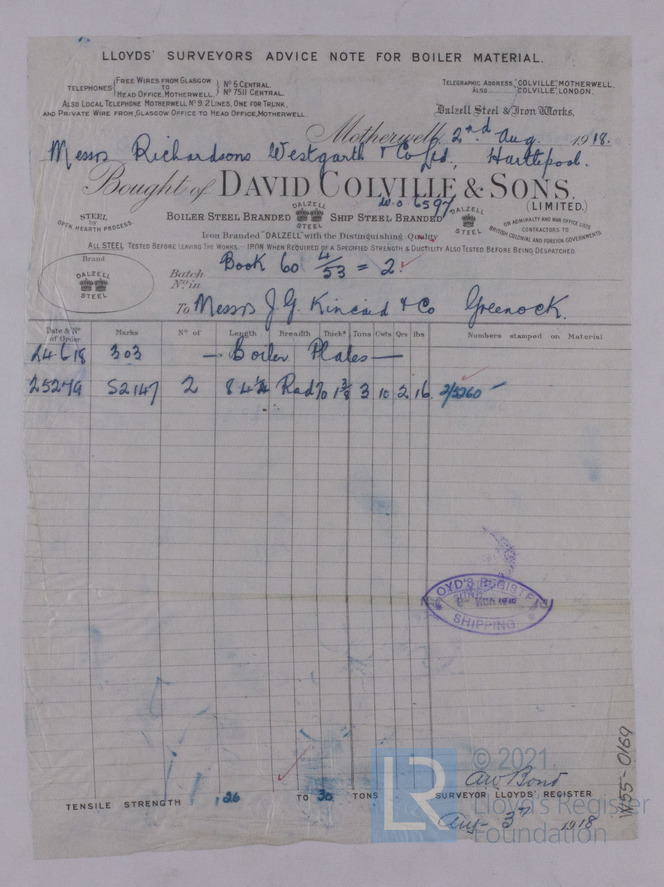 LLOYDS' SURVEYORS ADVICE NOTE FOR BOILER MATERIAL.
TELEPHONES FREE WIRES FROM GLASGOW TO HEAD OFFICE, MOTHERWELL. Nº 5 CENTRAL. Nº 7511 CENTRAL.
ALSO LOCAL TELEPHONE MOTHERWELL Nº 9. 2 LINES, ONE FOR TRUNK,
AND PRIVATE WIRE FROM GLASGOW OFFICE TO HEAD OFFICE, MOTHERWELL
TELEGRAPHIC ADDRESS, "COLVILLE", MOTHERWELL.
ALSO "COLVILLE", LONDON.
Dalzell Steel & Iron Works,
Motherwell, 2nd Aug. 1918.
Messrs Richardsons Westgarth & Co Ltd., Hartlepool.
Bought of DAVID COLVILLE & SONS.
(LIMITED.)
W.O 6597
STEEL BY OPEN HEARTH PROCESS.
BOILER STEEL BRANDED DALZELL STEEL SHIP STEEL BRANDED DALZELL STEEL
ON ADMIRALTY AND WAR OFFICE LISTS
CONTRACTORS TO
BRITISH COLONIAL AND FOREIGN GOVERNMENTS
Iron Branded "DALZELL" with the Distinguishing Quality
ALL STEEL TESTED BEFORE LEAVING THE WORKS. - IRON WHEN REQUIRED OF A SPECIFIED STRENGTH & DUCTILITY ALSO TESTED BEFORE BEING DESPATCHED.
Brand
DALZELL
STEEL
Batch Nº in Book 60 4/53 = 2.
To Messrs J. G. Kincaid & Co Greenock.
Date & Nº of Order Marks Nº of Length Breadth Thick's Tons Cwts Qrs lbs Numbers stamped on Material
24 6 18 303 — Boiler Plates —
25279 S2147 2 8 4¼ Rad 70 1⅜ 3 10 2 16. 2/5260
LLOYD'S REGISTER
SHIPPING
TENSILE STRENGTH 26 TO 30 TONS
A W Bond
SURVEYOR LLOYDS' REGISTER
Aug 3rd 1918
W55-0169
LR
© 2021
Lloyd's Register
Foundation